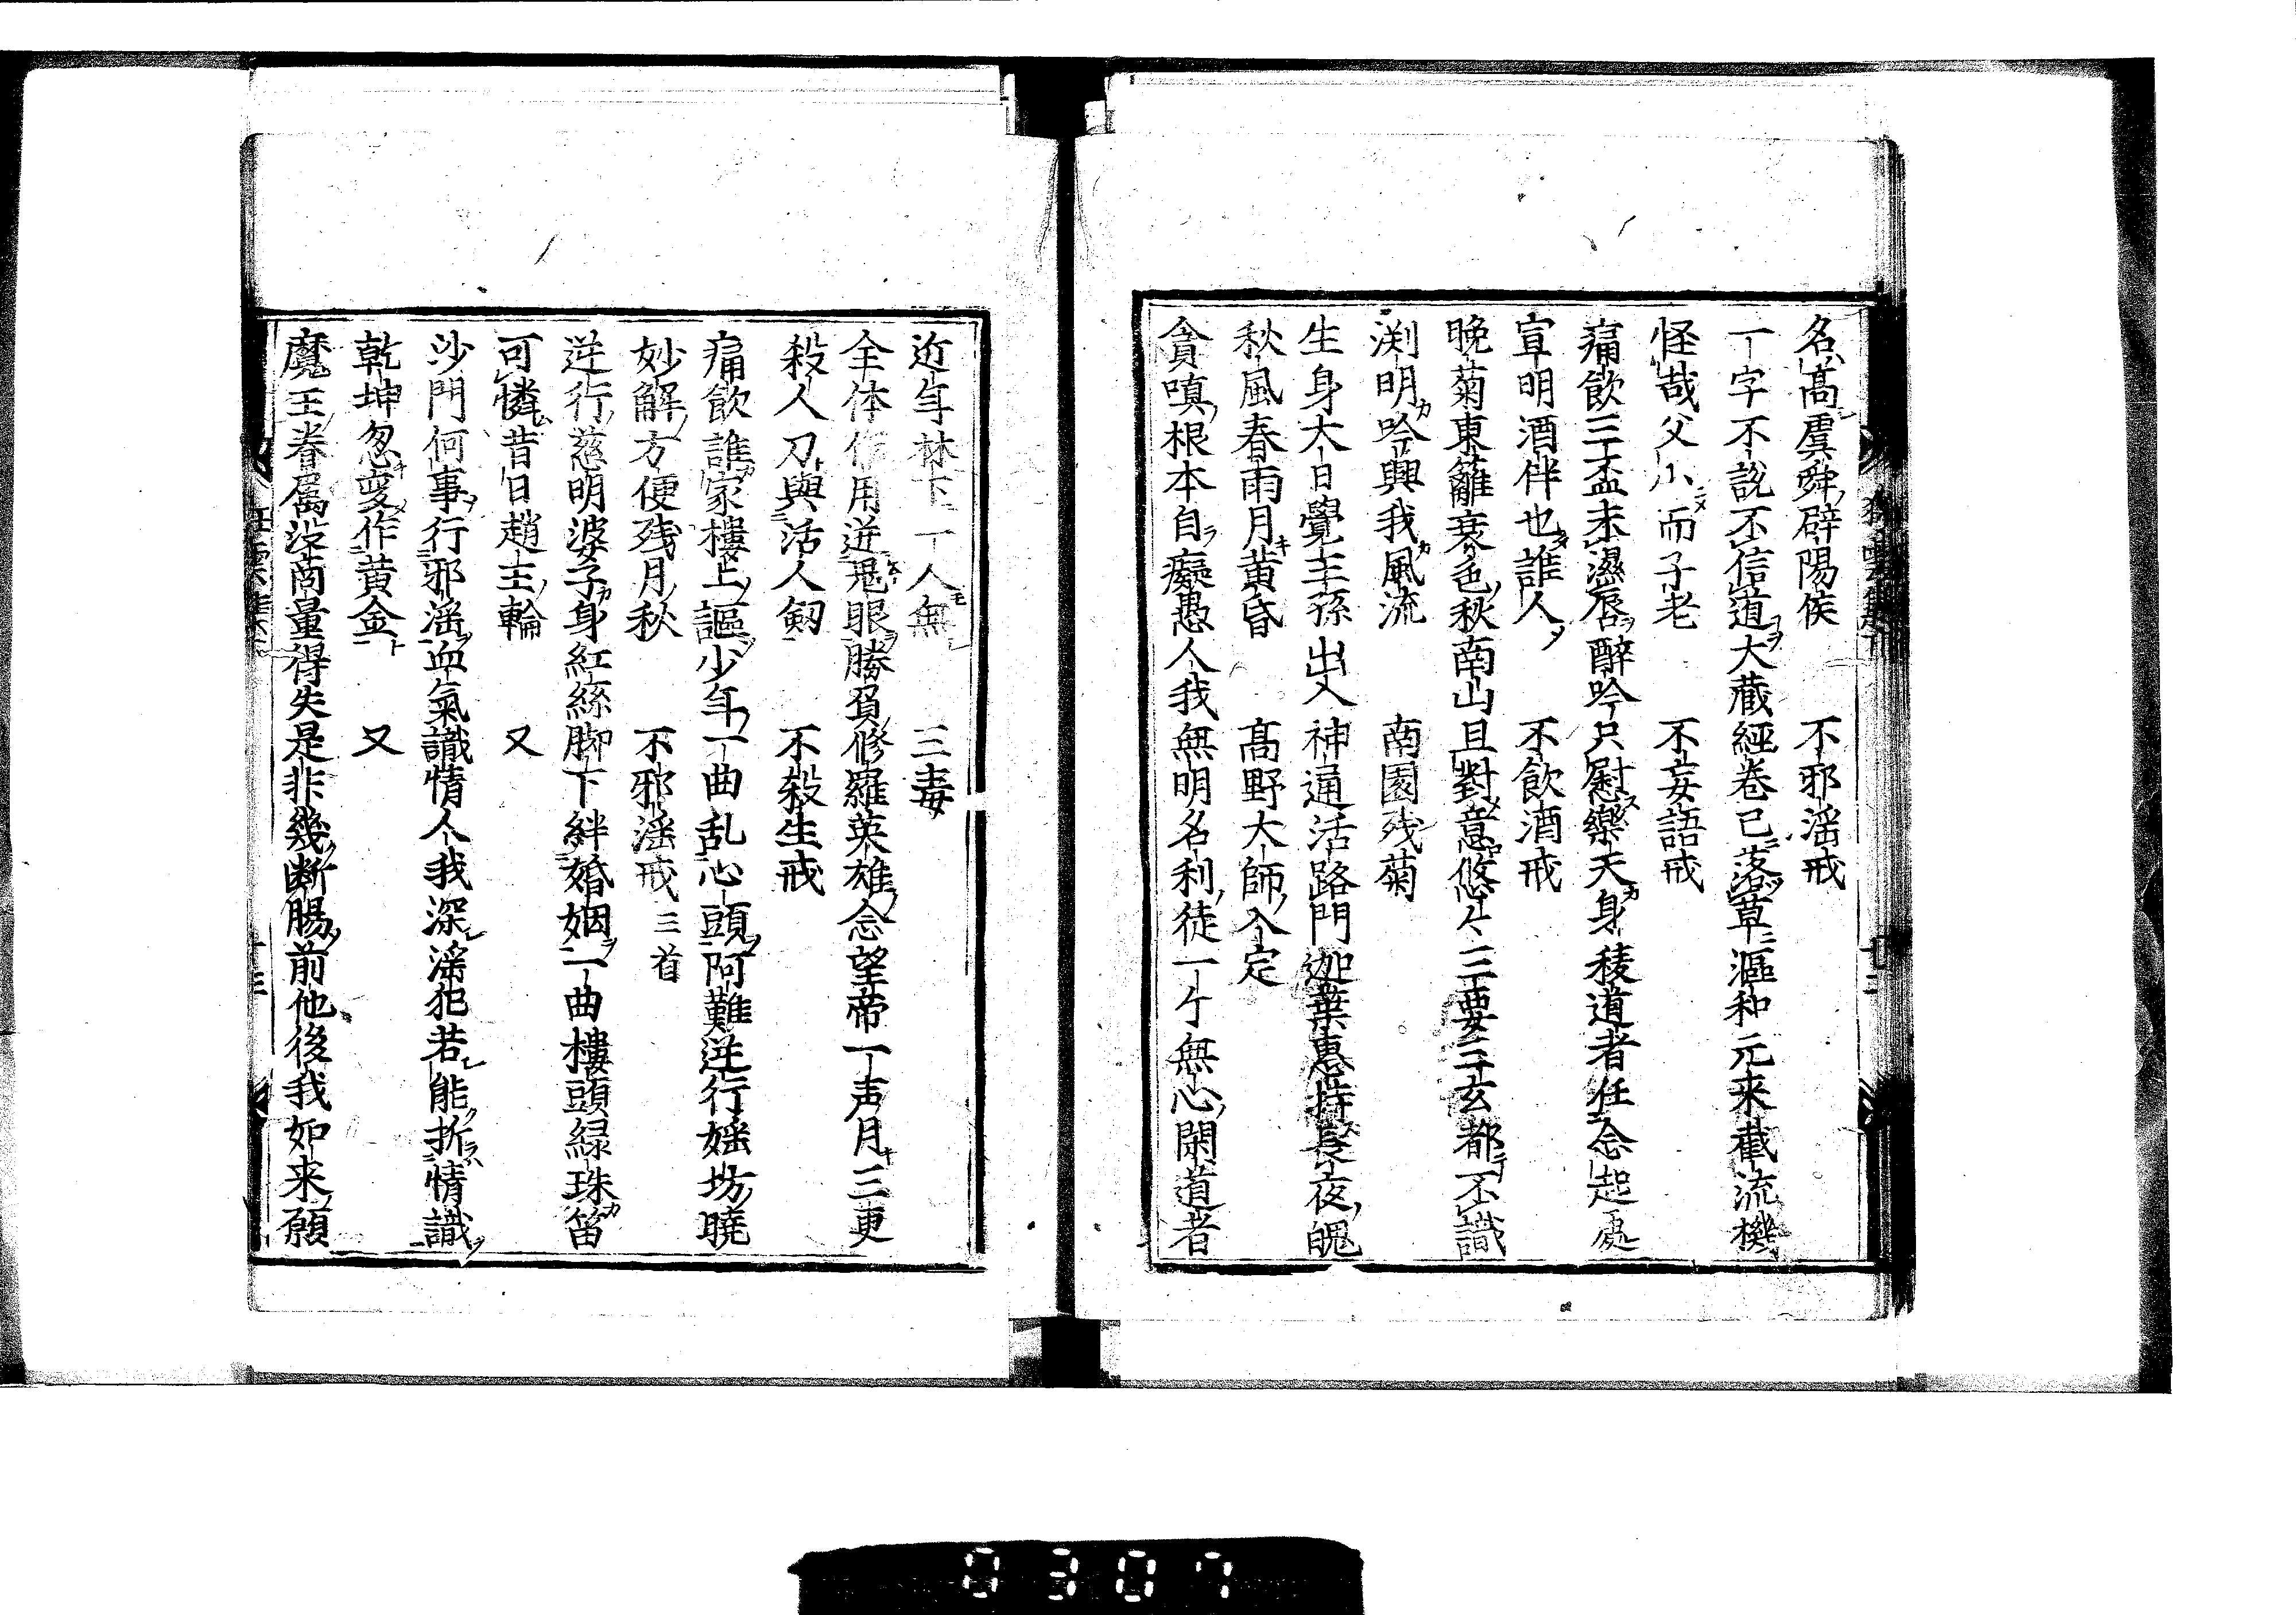 名高虞舜辟陽侯　不邪婬戒
一字不説不信道大藏經卷已落草漚和元来截流機
怪哉父小而子老　不妄語戒
痛飲三盃未濕唇醉吟只慰樂天身稜道者任念起處
宣明酒伴也誰人　不飲酒戒
晚菊東籬衰色秋南山且對意悠々三要三玄都不識
渕明吟興我風流　南園残菊
生身大日覺王孫出入神通活路門迦葉惠持長夜魄
秋風春雨月黄昏　高野大師入定
貪嗔根本自癡愚人我無明名利徒一个無心閑道者
近年林下一人無　三毒
全体作用迸鬼眼勝負修羅英雄念望帝一声月三更
殺人刀與活人劔　不殺生戒
痛飲誰家樓上謳少年一曲乱心頭阿難逆行婬坊曉
妙解方便残月秋　不邪婬戒 三首
逆行慈明婆子身紅絲脚下絆婚姻一曲樓頭緑珠笛
可憐昔日趙王輪　又
沙門何事行邪婬血氣識情人我深滛犯若能折情識
乾坤忽変作黄金　又
魔王眷属沒商量得失是非幾断腸前他後我如来願
0307